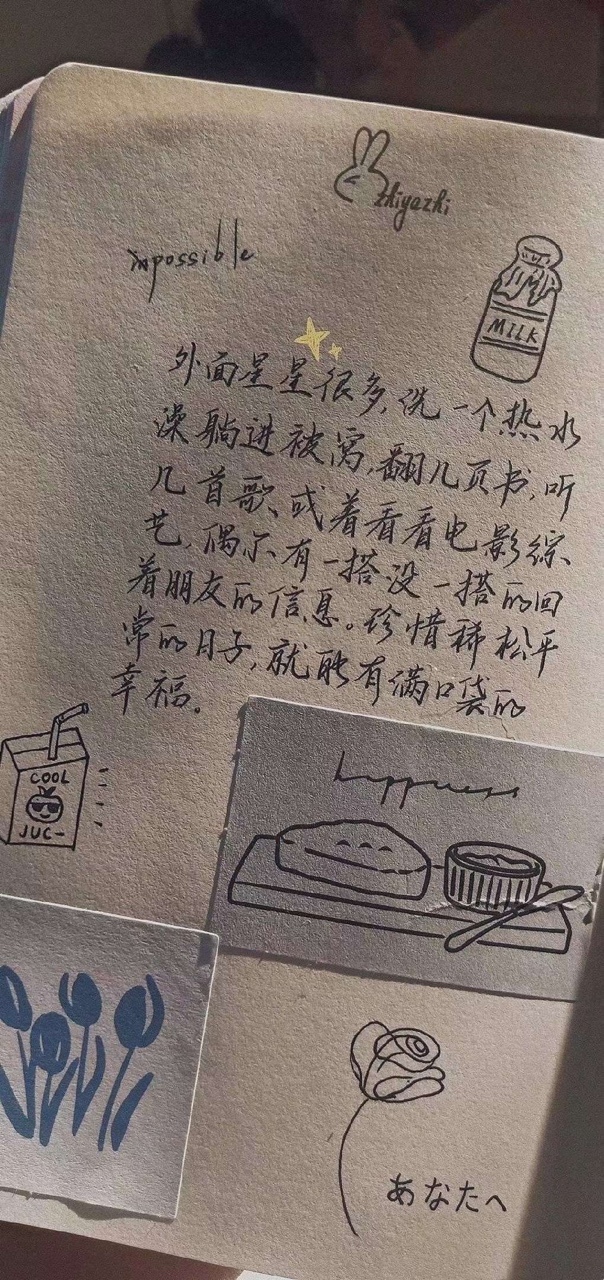 zhiyazhi
impossible
Milk
外面星星很多,洗一个热水
澡躺进被窝,翻几页书,听
几首歌、或着看看电影综
艺,偶尔有一搭没一搭的回
着朋友的信息。珍惜稀松平
常的日子,就能有满口袋的
幸福。
COOL
JUC-
happness
あなたへ